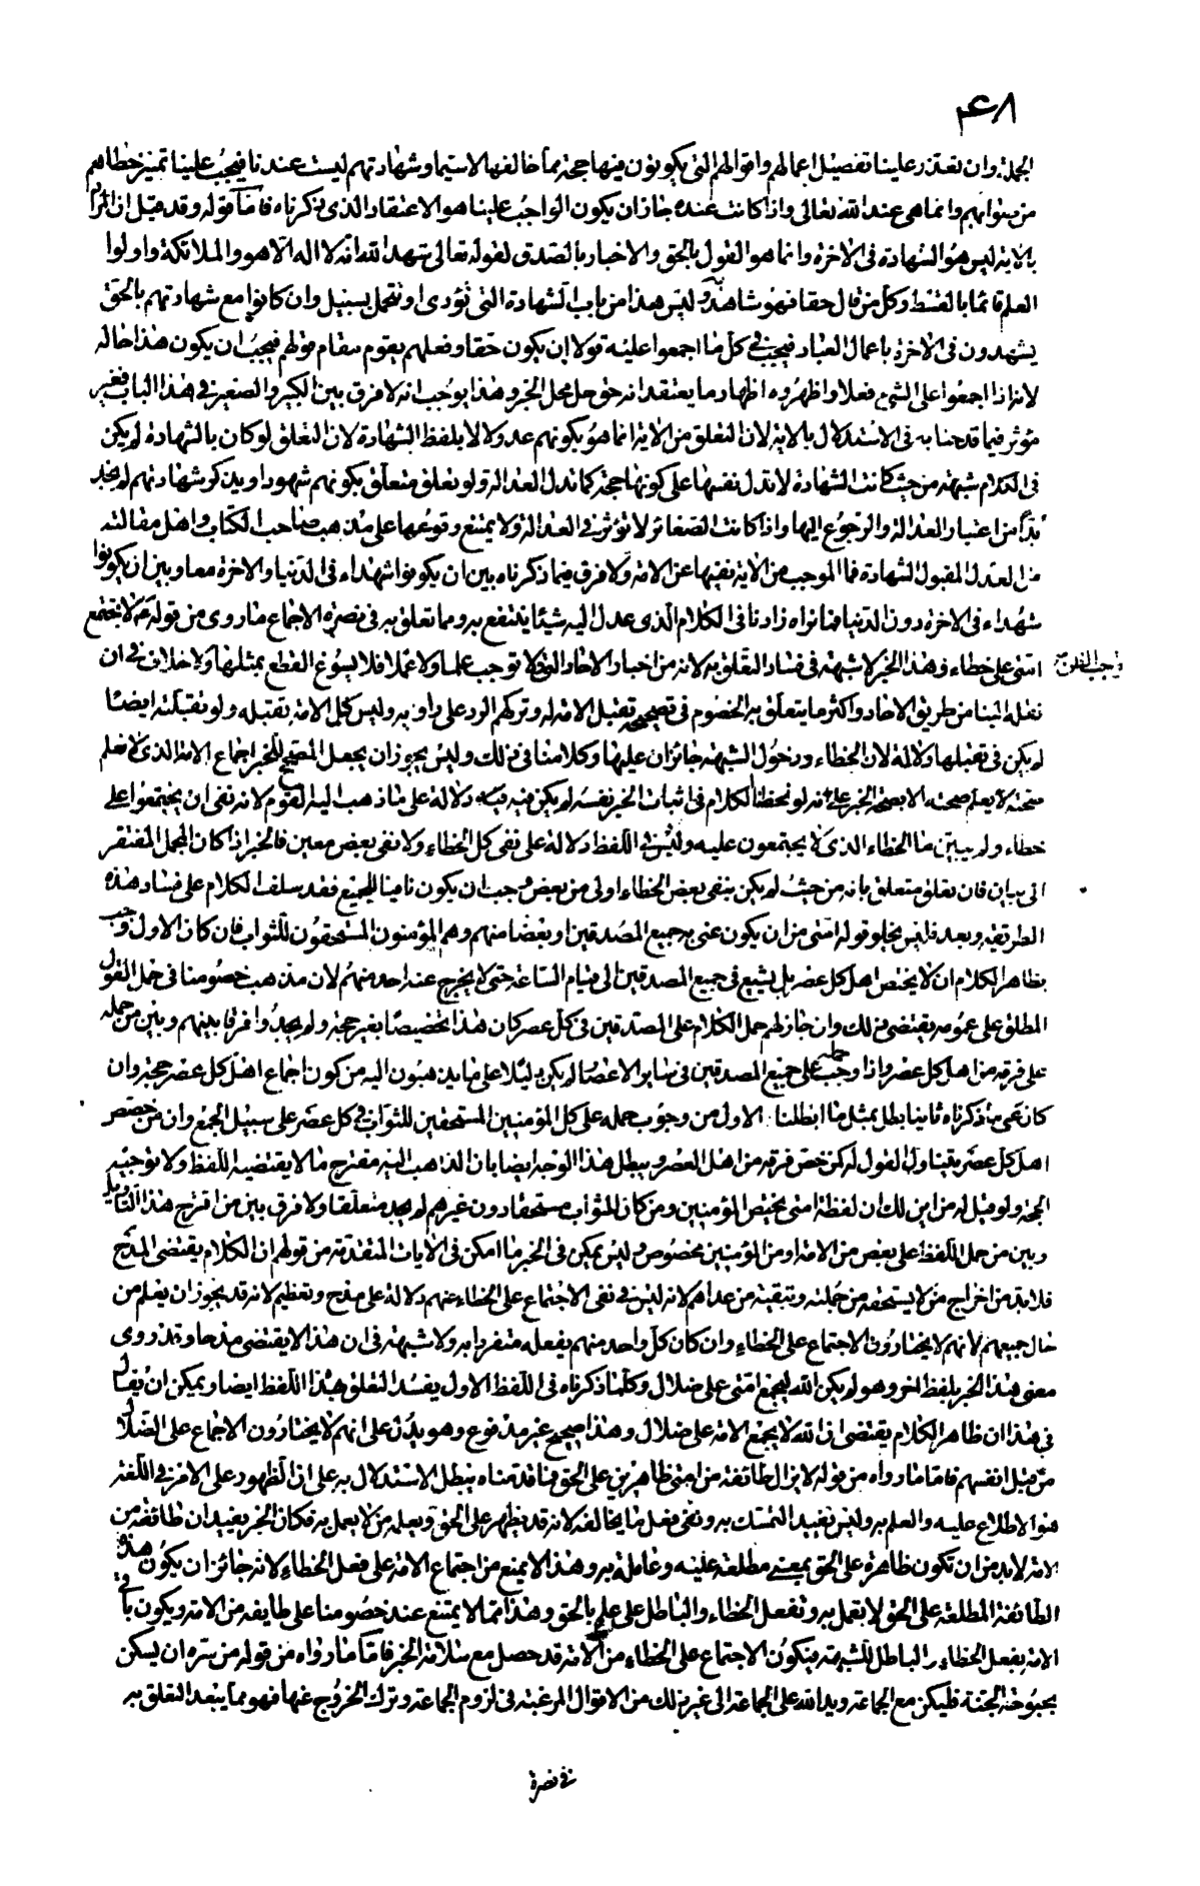 ۴۸
الجملة وان تعذر علينا تفصيل اعمالهم واقوالهم التي يكونون فيها حجة مما خالفها لاسيما وشهادتهم ليست عندنا فيجب علينا تميز خطائهم
من صوابهم وانما هي عند الله تعالى واذا كانت عنده جاز ان يكون الواجب علينا هو الاعتقاد الذي ذكرناه فاما قوله وقد قيل ان المراد
بالاية ليس هو الشهادة في الاخرة وانما هو القول بالحق والاخبار بالصدق لقوله تعالى شهد الله انه لا اله الا هو والملائكة واولوا
العلم قائما بالقسط وكل من قال حقا فهو شاهد به وليس هذا من باب الشهادة التي تؤدى او تتحمل بسبيل وان كانوا مع شهادتهم بالحق
يشهدون في الاخرة باعمال العباد فيجب في كل ما اجمعوا عليه قولا ان يكون حقا وفعلهم يقوم مقام قولهم فيجب ان يكون هذا حاله
لانهم اذا اجمعوا على الشيء فعلا واظهروه اظهار ما يعتقد انه حق حل محل الخبر وهذا يوجب انه لا فرق بين الكبير والصغير في هذا الباب فغير
مؤثر فيما قدحنا به في الاستدلال بالاية لان التعلق من الاية انما هو بكونهم عدولا لا بلفظ الشهادة لان التعلق لو كان بالشهادة لم يكن
في الكلام شبهة من حيث كانت الشهادة لا تدل نفسها على كونها حجة كما تدل العدالة ولو تعلق متعلق بكونهم شهودا وبذكر شهادتهم لم يجد
بدا من اعتبار العدالة والرجوع اليها واذا كانت الصغائر لا تؤثر في العدالة ولا يمتنع وقوعها على مذهب صاحب الكتاب واهل مقالته
من العدل المقبول الشهادة فما الموجب من الاية نفيها عن الامة ولا فرق فيما ذكرناه بين ان يكونوا شهداء في الدنيا والاخرة معا وبين ان يكونوا
شهداء في الاخرة دون الدنيا فما نراه زادنا في الكلام الذي عدل اليه شيئا ينتفع به ومما تعلق به في نصرة الاجماع ما روي من قوله ع لا تجتمع
امتي على خطاء وهذا الخبر لا شبهة في فساد التعلق به لانه من اخبار الاحاد التي لا توجب علما ولا عملا فلا يسوغ القطع بمثلها ولا خلاف في ان
نقله الينا من طريق الاحاد واكثر ما يتعلق به الخصوم في تصحيحه تقبل الامة له وتركهم الرد على راويه وليس كل الامة يقبله ولو تقبلته ايضا
لم يكن في تقبلها دلالة لان الخطاء ودخول الشبهة جائزان عليها وكلامنا في ذلك وليس يجوز ان يجعل المصحح للخبر اجماع الامة الذي لا نعلم
صحته لا يعلم صحته الا بصحة الخبر على انه لو تخطانا الكلام في اثبات الخبر نفسه لم يكن فيه دلالة على ما ذهب اليه القوم لانه نفى ان يجتمعوا على
خطاء ولم يبين ما الخطاء الذي لا يجتمعون عليه وليس في اللفظ دلالة على نفي كل الخطاء ولا نفي بعض معين فالخبر اذا كان المجمل المفتقر
الى بيان فان تعلق متعلق بانه من حيث لم يكن بنفي بعض الخطاء اولى من بعض وجب ان يكون نافيا للجميع فقد سلف الكلام على فساد هذه
الطريقة وبعد فليس يخلو قوله امتي من ان يكون عنى به جميع المصدقين او بعضا منهم وهم المؤمنون المستحقون للثواب فان كان الاول وجب
بظاهر الكلام ان لا يختص اهل كل عصر بل يشيع في جميع المصدقين الى قيام الساعة حتى لا يخرج عنه احد منهم لان مذهب خصومنا في حمل القول
المطلق على عمومه يقتضي ذلك وان جاز لهم حمل الكلام على المصدقين في كل عصر كان هذا تخصيصا بغير حجة ولم يجدوا فرقا بينهم وبين من حمله
على فرقة من اهل كل عصر واذا وجب حمله على جميع المصدقين في سائر الاعصار لم يكن دليلا على ما يذهبون اليه من كون اجماع اهل كل عصر حجة وان
كان عنى ما ذكرناه ثانيا بطل بمثل ما ابطلنا الاول من وجوب حمله على كل المؤمنين المستحقين للثواب في كل عصر على سبيل الجمع وان من خصص
اهل كل عصر بتناول القول له كمن خص فرقة من اهل العصر ويبطل هذا الوجه ايضا بان الذاهب اليه مقترح ما لا يقتضيه اللفظ ولا توجبه
الحجة ولو قيل له من اين لك ان لفظة امتي يختص المؤمنين ومن كان للثواب مستحقا دون غيرهم لم يجد متعلقا ولا فرق بين من اقترح هذا التاويل
وبين من حمل اللفظ على بعض من الامة او من المؤمنين مخصوص وليس يمكن في الخبر ما امكن في الايات المتقدمة من قولهم ان الكلام يقتضي المدح
فلا بد من اخراج من لا يستحقه من جملته وتبقية من عداهم لانه ليس في نفي الاجتماع على الخطاء عنهم دلالة على مدح وتعظيم لانه قد يجوز ان يعلم من
حال جميعهم لانهم لا يختارون الاجتماع على الخطاء وان كان كل واحد منهم يفعله متفردا به ولا شبهة في ان هذا لا يقتضي مدحا وقد روى
معنى هذا الخبر بلفظ اخر وهو لم يكن الله ليجمع امتي على ضلال وكلما ذكرناه في اللفظ الاول يفسد التعلق بهذا اللفظ ايضا ويمكن ان يقال
في هذا ان ظاهر الكلام يقتضي ان الله لا يجمع الامة على ضلال وهذا صحيح غير مدفوع وهو لا يدل على انهم لا يختارون الاجماع على الضلال
من قبل انفسهم فاما ما رواه من قوله لا يزال طائفة من امتي ظاهرين على الحق فما قدمناه يبطل الاستدلال به على ان الظهور على الامر في اللغة
هو الاطلاع عليه والعلم به وليس تفيد التمسك به ونفي فعل ما يخالفه لانه قد يظهر على الحق ويعلمه من لا يعمل به فكان الخبر يفيد ان طائفة من
الامة لا بد من ان تكون ظاهرة على الحق بمعنى مطلعة عليه وعاملة به وهذا لا يمنع من اجتماع الامة على فعل الخطاء لانه جائز ان يكون هذه
الطائفة المطلعة على الحق لا تعمل به وتفعل الخطاء والباطل على علم بالحق وهذا مما لا يمتنع عند خصومنا على طايفة من الامة ويكون باقي
الامة يفعل الخطاء والباطل للشبهة فيكون الاجتماع على الخطاء من الامة قد حصل مع سلامة الخبر فاما ما رواه من قوله من سره ان يسكن
بحبوحة الجنة فليكن مع الجماعة ويد الله على الجماعة الى غير ذلك من الاقوال المرغبة في لزوم الجماعة وترك الخروج عنها فهو مما يبعد التعلق به
في نصرة